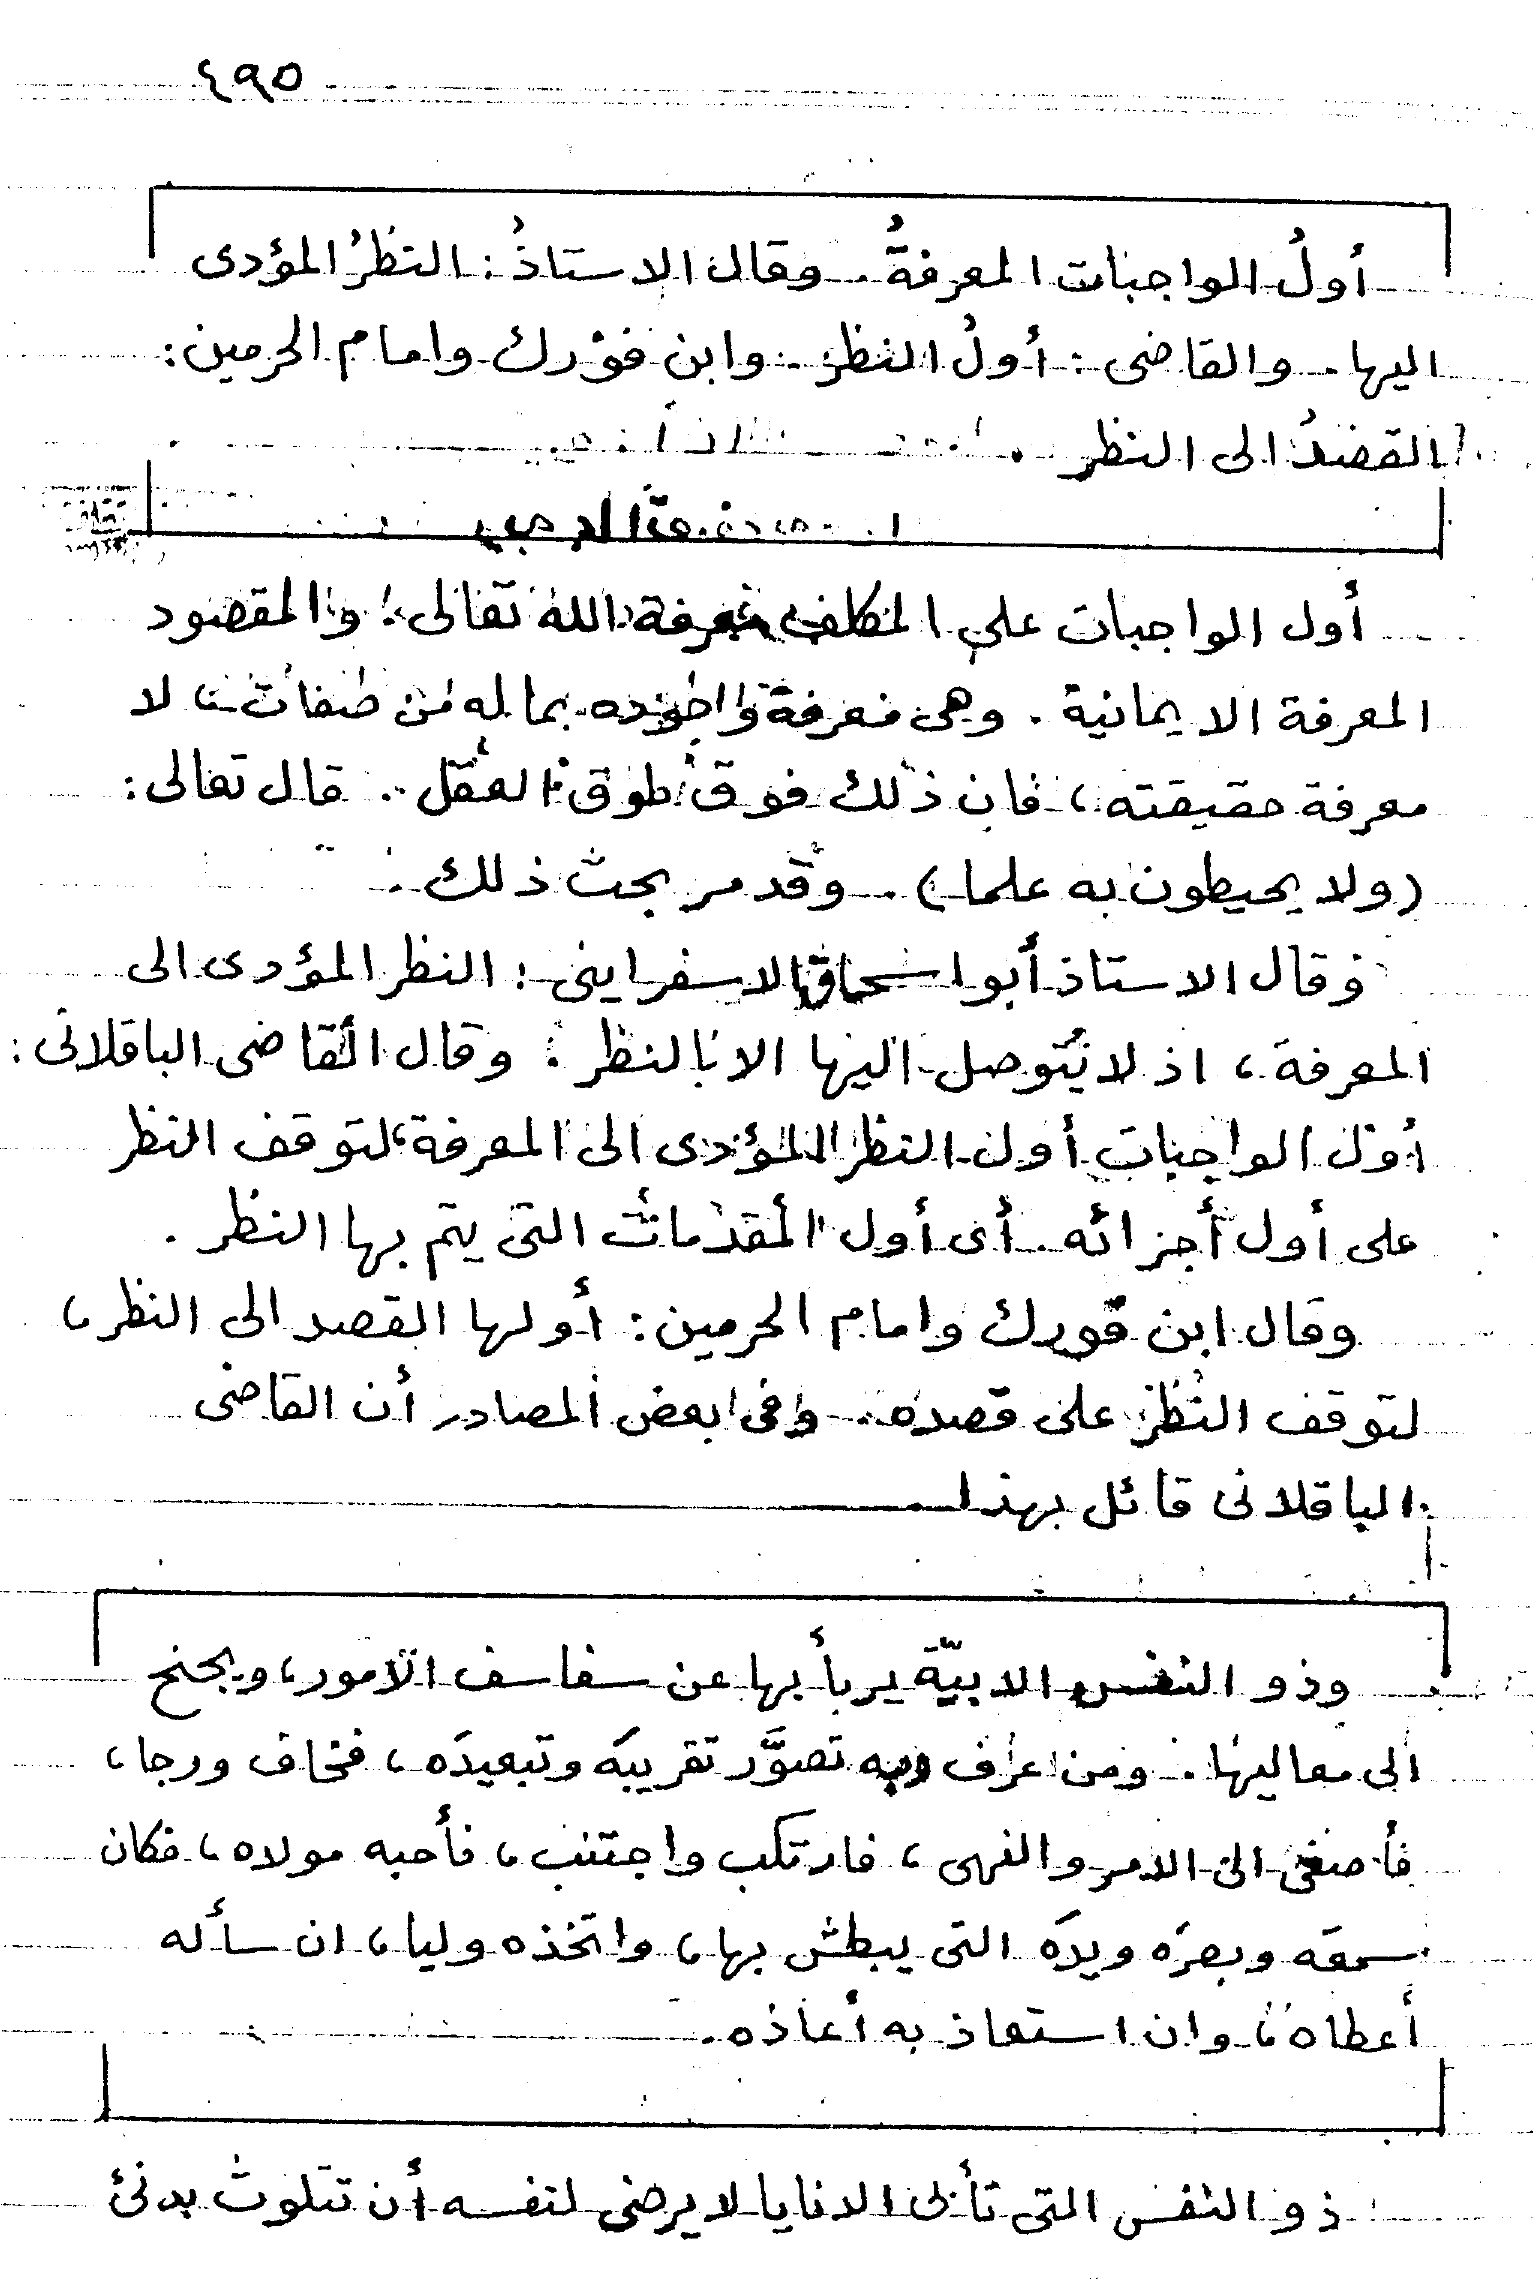 ٤٩٥
أولُ الواجبات المعرفةُ. وقال الاستاذُ: النظرُ المؤدى
اليها. والقاضى: أولُ النظر. وابن فوْرك وامام الحرمين:
القصدُ الى النظر.
أول الواجبات على المكلف معرفة الله تعالى، والمقصود
المعرفة الايمانية. وهى معرفة وجوده بماله من صفات، لا
معرفة حقيقته، فان ذلك فوق طوق العقل. قال تعالى:
(ولا يحيطون به علما). وقد مر بحث ذلك.
وقال الاستاذ أبو اسحاق الاسفراينى: النظر المؤدى الى
المعرفة، اذ لا يُتوصل اليها الا بالنظر. وقال القاضى الباقلانى:
أول الواجبات أول النظر المؤدى الى المعرفة، لتوقف النظر
على أول أجزائه. أى أول المقدمات التى يتم بها النظر.
وقال ابن فورك وامام الحرمين: أولها القصد الى النظر،
لتوقف النظر على قصده. وفى بعض المصادر أن القاضى
الباقلانى قائل بهذا
وذو النفس الابيّة يربأ بها عن سفاسف الامور، ويجنح
الى معاليها. ومن عرف ربه تصوَّر تقريبَه وتبعيدَه، فخاف ورجا،
فأصغى الى الامر والنهى، فارتكب واجتنب، فأحبه مولاه، فكان
سمعَه وبصرَه ويدَه التى يبطش بها، واتخذه وليا، ان سأله
أعطاه، وان استعاذ به أعاذه.
ذو النفس التى تأبى الدنايا لا يرضى لنفسه أن تتلوث بدنئ